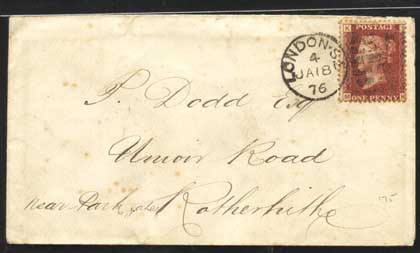 POSTAGE
ONE PENNY
LONDON-S
4
JA18
76
P. Dodd Esq
Union Road
near Park gates Rotherhithe
175